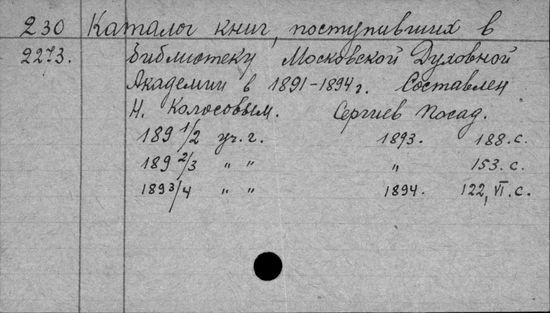 230 Каталог книг, поступивших в
2273. Библиотеку Московской Духовной
Академии в 1891-1894 г. Составлен
Н. Колосовым. Сергиев Посад.
189 1/2 уч. г. 1893. 188. с.
189 2/3 " " " 153. с.
189 3/4 " " 1894. 122, VI. с.